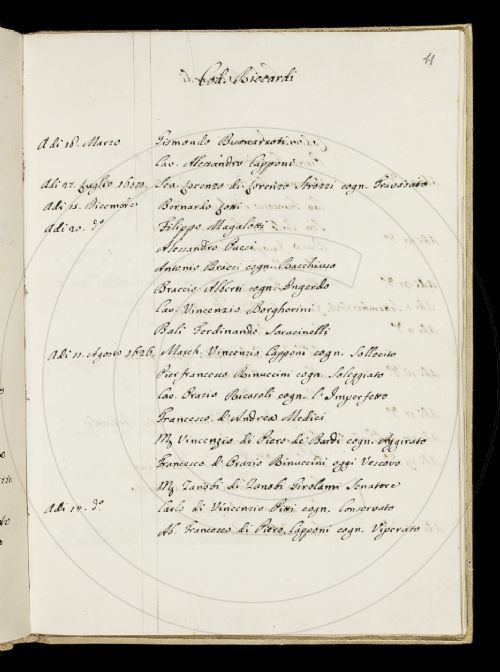 41
Cod: Riccardi
A di 18. Marzo Gismondo Buonarroti
Cav. Alessandro Capponi
A di 27. Luglio Sen. Lorenzo di Lorenzo Strozzi cogn. Travasato
A di 15. Dicembre Bernardo
A di 20. do Filippo Magalotti
Alessandro Pucci
Antonio Bracci cogn. Bacchiuso
Braccio Alberti cogn. Ingordo
Cav. Vincenzio Borgherini
Balì Ferdinando Saracinelli
A di 11. Agosto 1626. March. Vincenzio Capponi cogn. Sollecito
Pierfrancesco Rinuccini cogn. Soleggiato
Cav. Orazio Ricasoli cogn. l'Imperfetto
Francesco d'Andrea Medici
Vincenzio di Piero de' Bardi cogn. Aggirato
Francesco d'Orazio Rinuccini oggi Vescovo
Zanobi di Zanobi Girolami Senatore
A di 19. do Carlo di Vincenzio Pitti cogn. Conservato
Ab. Francesco di Piero Capponi cogn. Viperato